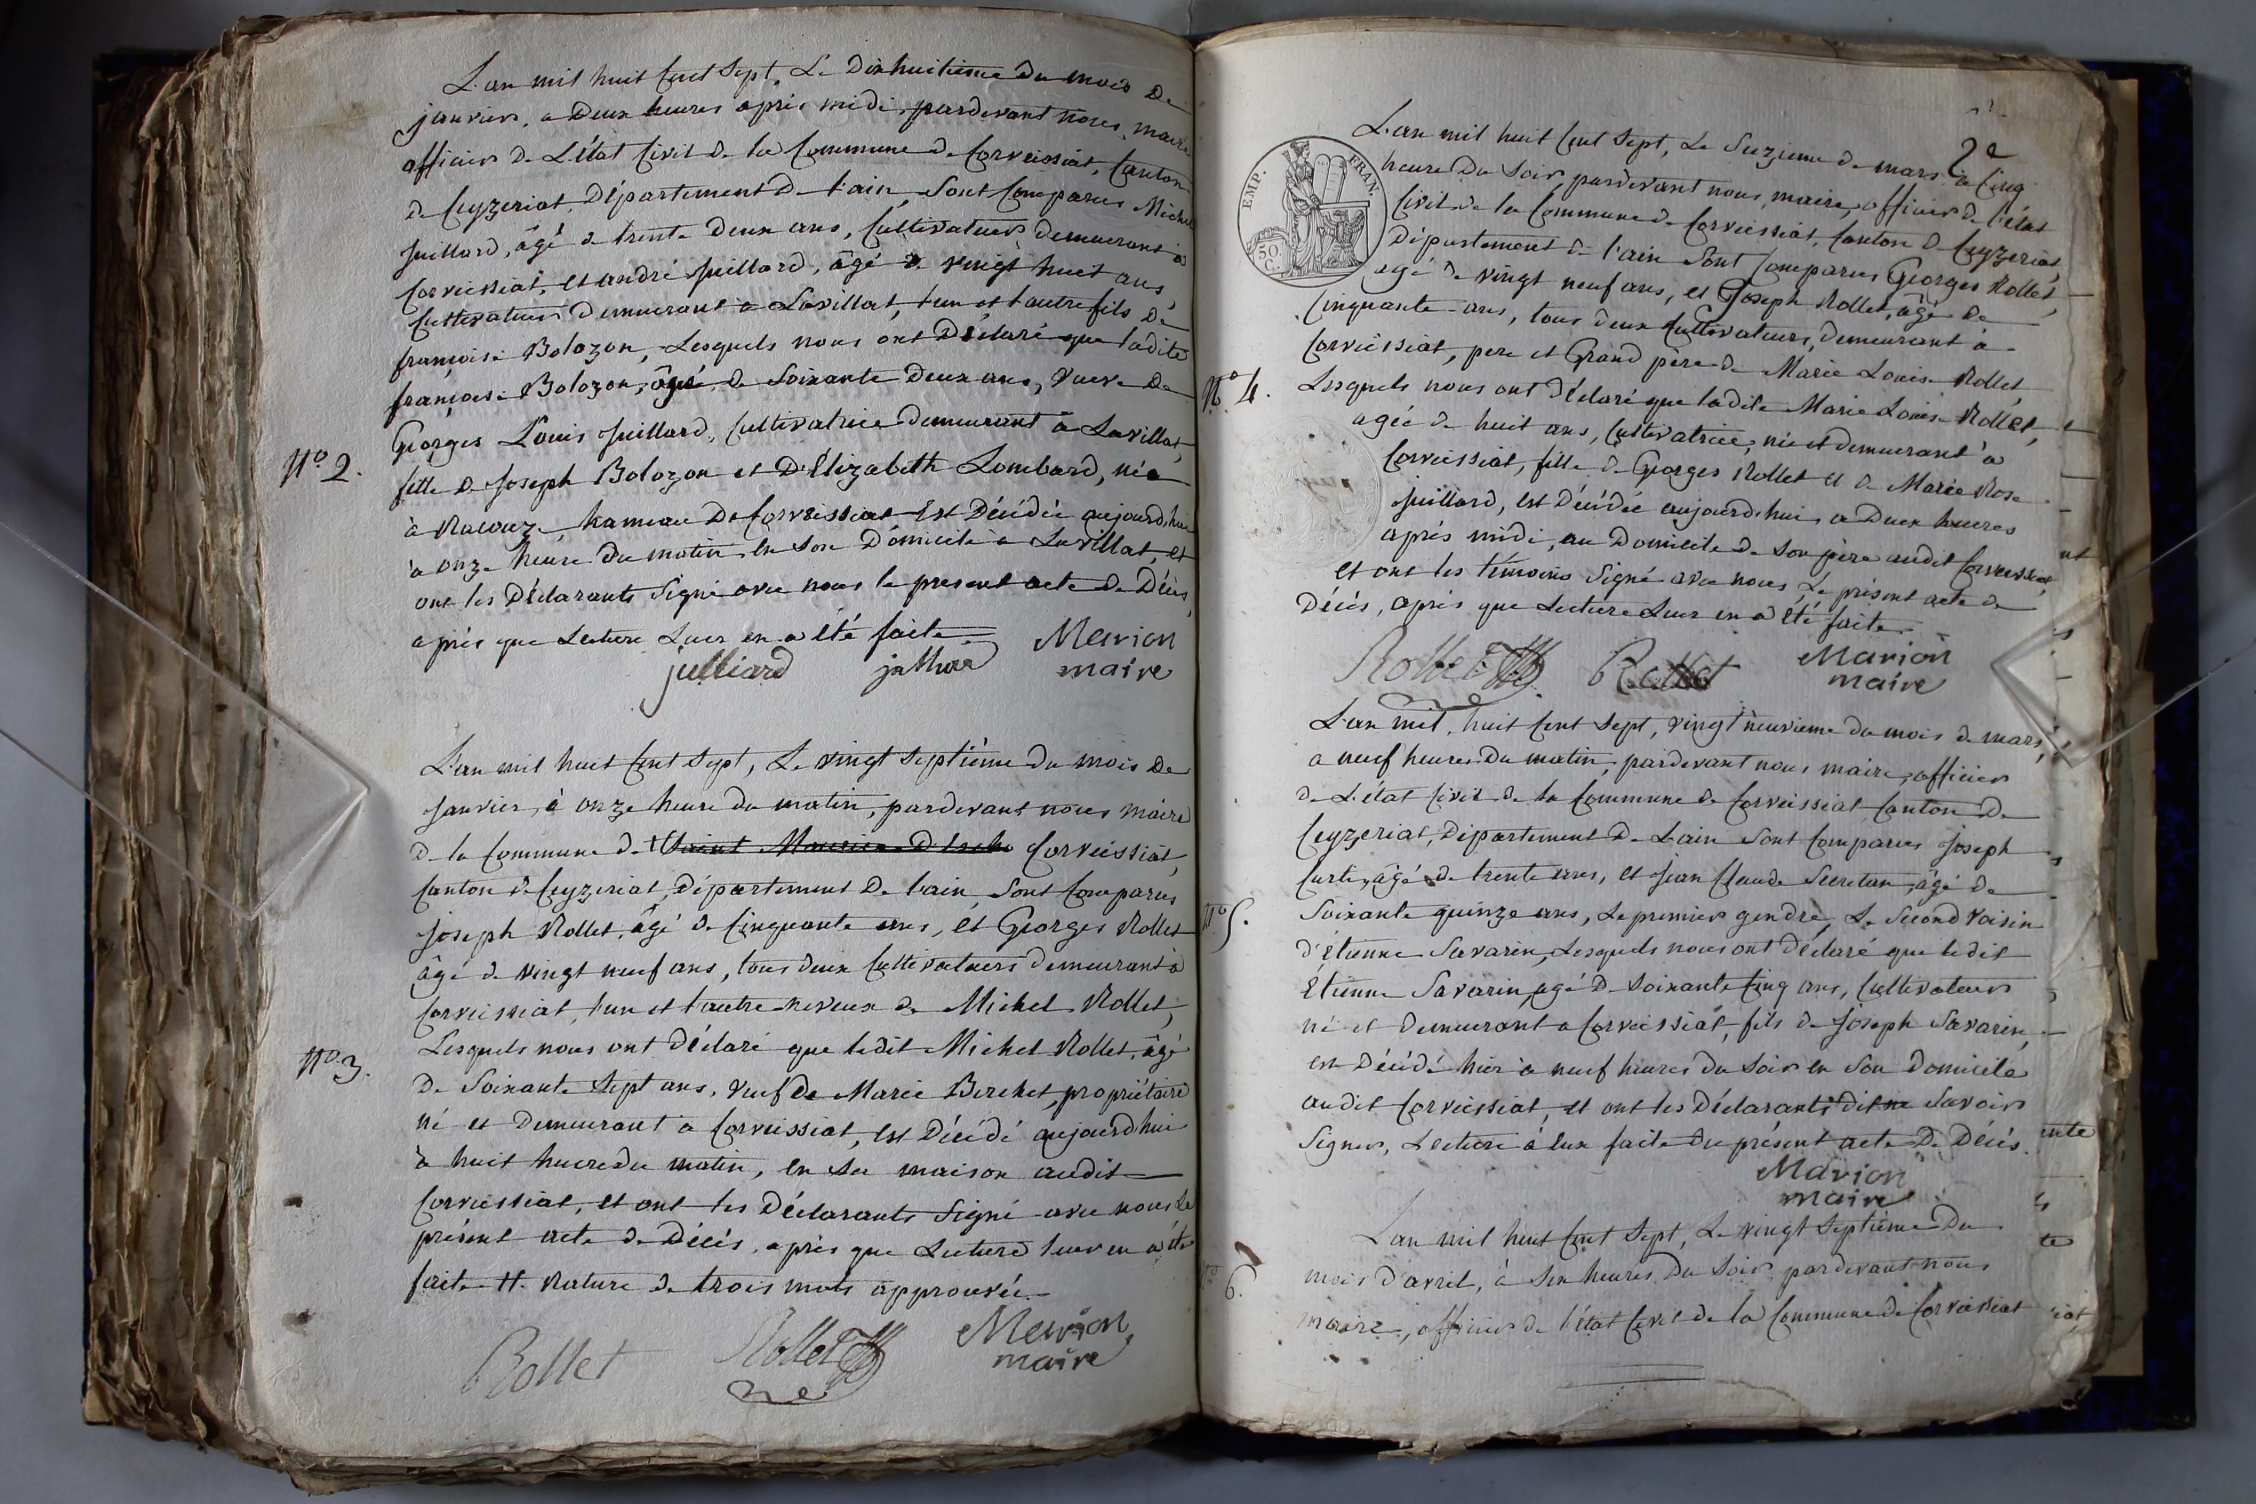 L'an mil huit Cent Sept, Le Dixhuitième du mois De
janvier, a Deux heures après midi, pardevant nous, maire
officier De L'état Civil De la Commune De Corveissiat, Canton
De Ceyzeriat, Département De l'ain, Sont Comparus Michel
Juillard, âgé De trente Deux ans, Cultivateur demeurant à
Corveissiat, et andré Juillard, âgé De vingt huit ans,
Cultivateur Demeurant à Lavillat, l'un et l'autre fils De
françoise Bolozon, Lesquels nous ont Déclaré que ladite
françoise Bolozon, âgée, de Soixante Deux ans, veuve De
Georges Louis Juillard, Cultivatrice Demeurant à Lavillat,
Nº 2.
fille De Joseph Bolozon et D'Elizabeth Lombard, née
à Racouze, hameau De Corveissiat Est Décédée aujourd'hui
à onze heure du matin en Son Domicile à Lavillat, et
ont les Déclarants Signé avec nous le present acte De Décès,
après que Lecture Leur en a été faite.
julliard
Marion
maire
L'an mil huit Cent Sept, Le vingt Septième du mois De
Janvier, à onze heure du matin, pardevant nous maire
De la Commune De Saint Maurice Corveissiat,
Canton De Ceyzeriat, Département De l'ain, Sont Comparus
Joseph Rollet, âgé De Cinquante ans, et Georges Rollet
âgé De vingt neuf ans, tous deux Cultivateurs demeurant à
Corveissiat, l'un et l'autre neveux De Michel Rollet,
Nº 3.
Lesquels nous ont Déclaré que ledit Michel Rollet, âgé
De Soixante Sept ans, veuf De Marie Berchet, propriétaire
né et Demeurant à Corveissiat, est Décédé aujourd'hui
à huit heure du matin, en Sa maison audit
Corveissiat, et ont les Déclarants Signé avec nous Le
présent acte De Décès, après que Lecture leur en a été
faite. Rature De trois mots approuvée.
Rollet
Rollet
Marion
maire
2e
EMP. FRAN.
50 C.
L'an mil huit Cent Sept, Le Seizieme De mars à Cinq
heure Du Soir, pardevant nous, maire, officier De l'état
Civil De la Commune De Corveissiat, Canton De Ceyzeriat,
Département De l'ain Sont Comparus Georges Rollet,
agé De vingt neuf ans, et Joseph Rollet, âgé De
Cinquante ans, tous deux Cultivateurs, demeurant à
Corveissiat, pere et Grand père De Marie Louise Rollet,
Nº 4.
Lesquels nous ont Déclaré que ladite Marie Louise Rollet,
agée De huit ans, Cultivatrice, née et demeurant à
Corveissiat, fille De Georges Rollet et De Marie Rose
Juillard, est Décédée aujourd'hui, a Deux heures
après midi, au Domicile De Son père audit Corveissiat,
et ont les témoins Signé avec nous, Le présent acte De
Décès, après que Lecture Leur en a été faite.
Rollet
Rollet
Marion
maire
L'an mil huit Cent Sept, vingt neuvieme du mois De mars,
a neuf heures Du matin, pardevant nous maire, officier
De L'état Civil De la Commune De Corveissiat Canton De
Ceyzeriat, Département De L'ain Sont Comparus Joseph
Curte, âgé De trente ans, et Jean Claude Secretan, âgé De
Nº 5.
Soixante quinze ans, Le premier gendre, Le Second voisin
d'Étienne Savarin, Lesquels nous ont Déclaré que ledit
Étienne Savarin, agé De Soixante Cinq ans, Cultivateur
né et Demeurant a Corveissiat, fils De Joseph Savarin,
est Décédé hier à neuf heures Du Soir en Son Domicile
audit Corveissiat, et ont les Déclarants dit ne Savoir
Signer, Lecture à Eux faite Du présent acte De Décès.
Marion
maire
Nº 6.
L'an mil huit Cent Sept, Le vingt Septième Du
mois d'avril, à Six heures Du Soir, pardevant nous
maire, officier De l'état Civil De la Commune De Corveissiat